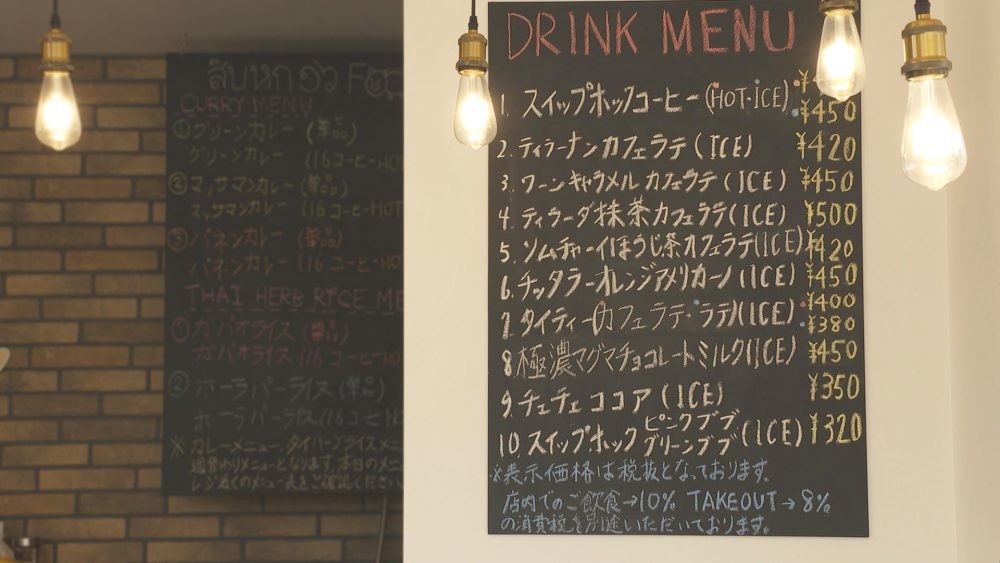 สิบหก
CURRY MENU
①グリーンカレー (単品)
グリーンカレー (16コーヒーHOT
②マッサマンカレー (単品)
マッサマンカレー (16コーヒーHOT
③パネンカレー (単品)
パネンカレー (16コーヒーHO
THAI HERB RYCE ME
①ガパオライス (単品)
ガパオライス (16コーヒーHOT
②ホーラパーライス (単品)
ホーラパーライス (16コーヒー
※カレーメニュー、タイハーブライスメニ
週替わりメニューとなります。本日のメニ
レジ近くのメニュー表をご確認ください。
DRINK MENU
1. スイップホックコーヒー (HOT・ICE) ¥450
2. ティラーナンカフェラテ (ICE) ¥420
3. ワーンキャラメルカフェラテ (ICE) ¥450
4. ティラーダ抹茶カフェラテ (ICE) ¥500
5. ソムチャーイほうじ茶カフェラテ (ICE) ¥420
6. チッタラーオレンジアメリカーノ (ICE) ¥450
7. タイティー (カフェラテ・ラテ) (ICE) ¥400 ¥380
8. 極濃マグマチョコレートミルク (ICE) ¥450
9. チェチェココア (ICE) ¥350
10. スイップホック ピンクブブ グリーンブブ (ICE) ¥320
※表示価格は税抜となっております。
店内でのご飲食→10% TAKEOUT→8%
の消費税を別途いただいております。